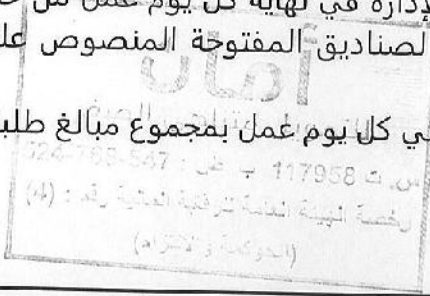 لإدارة في نهاية كل يوم عمل من
لصناديق المفتوحة المنصوص
أمان
ي كل يوم عمل بمجموع مبالغ طلب
س. ت 117958 ب ض : 547-768-524
رخصة الهيئة العامة للرقابة المالية رقم : (
(الحوكمة و الالتزام)